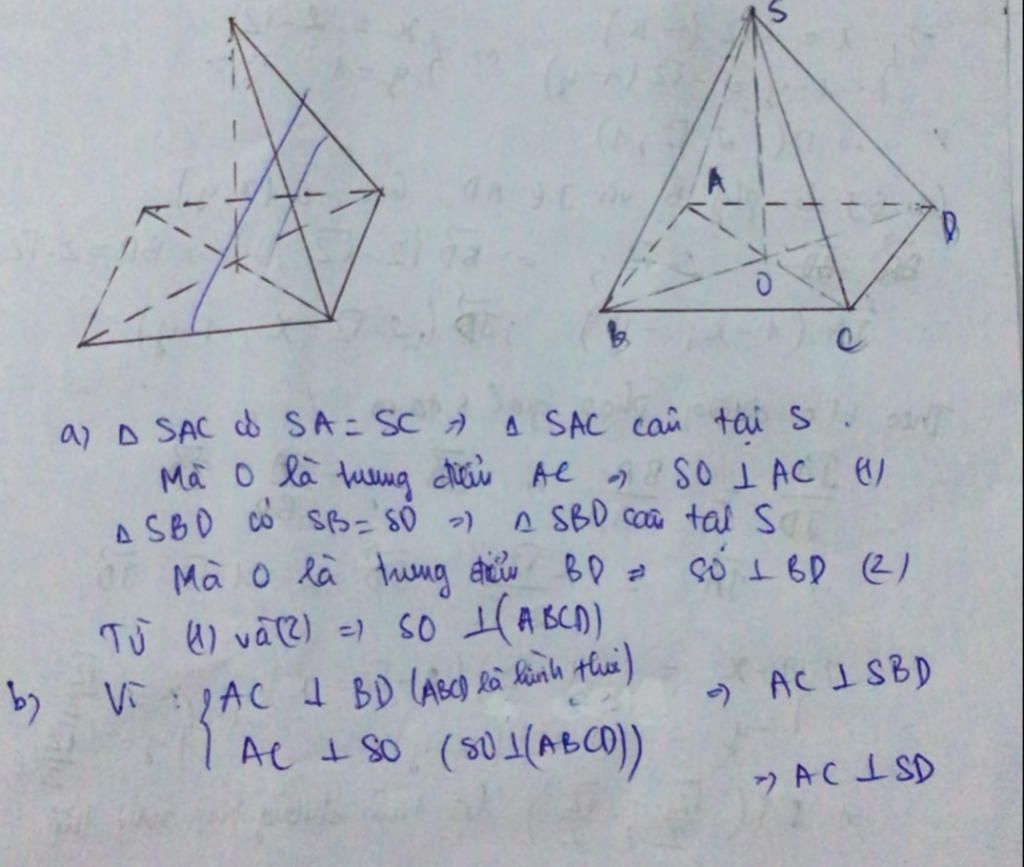 S
A
D
O
B
C
a) Δ SAC có SA = SC => Δ SAC cân tại S .
Mà O là trung điểm AC => SO ⊥ AC (1)
Δ SBD có SB = SD => Δ SBD cân tại S
Mà O là trung điểm BD => SO ⊥ BD (2)
Từ (1) và (2) => SO ⊥ (ABCD)
b) Vì : { AC ⊥ BD (ABCD là hình thoi) => AC ⊥ SBD
AC ⊥ SO (SO ⊥ (ABCD))
=> AC ⊥ SD